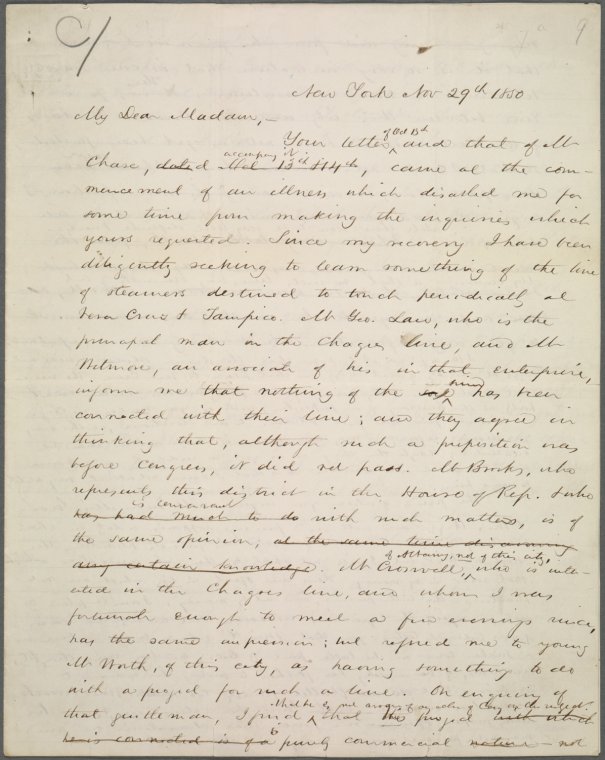 9
New York Nov 29th 1850
My Dear Madam,—
of Oct 13th
Your letter, and that of Mr
accompang it
Chase, dated Oct 13th & 14th, came at the com-
mencement of an illness which disabled me for
some time from making the inquiries which
yours requested. Since my recovery I have been
diligently seeking to learn something of the line
of steamers destined to touch periodically at
Vera Cruz & Tampico. Mr Geo. Law, who is the
principal man in the Chagres line, and Mr
Wetmore, an associate of his in that enterprise,
kind
inform me that nothing of the has been
connected with their line; and they agree in
thinking that, although such a proposition was
before Congress, it did not pass. Mr Brooks, who
represents this district in the House of Rep. & who
is conversant
has had much to do with such matters, is of
the same opinion, at the same time disavowing
of Albany, not of this city,
any certain knowledge. Mr Croswell, who is inter-
ested in the Chagres line, and whom I was
fortunate enough to meet a few evenings since,
has the same impression; but refered me to young
Mr Worth, of this city, as having something to do
with a project for such a line. On enquiry of
that gentleman, I find that this project with which
he is connected is of a purely commercial nature — not